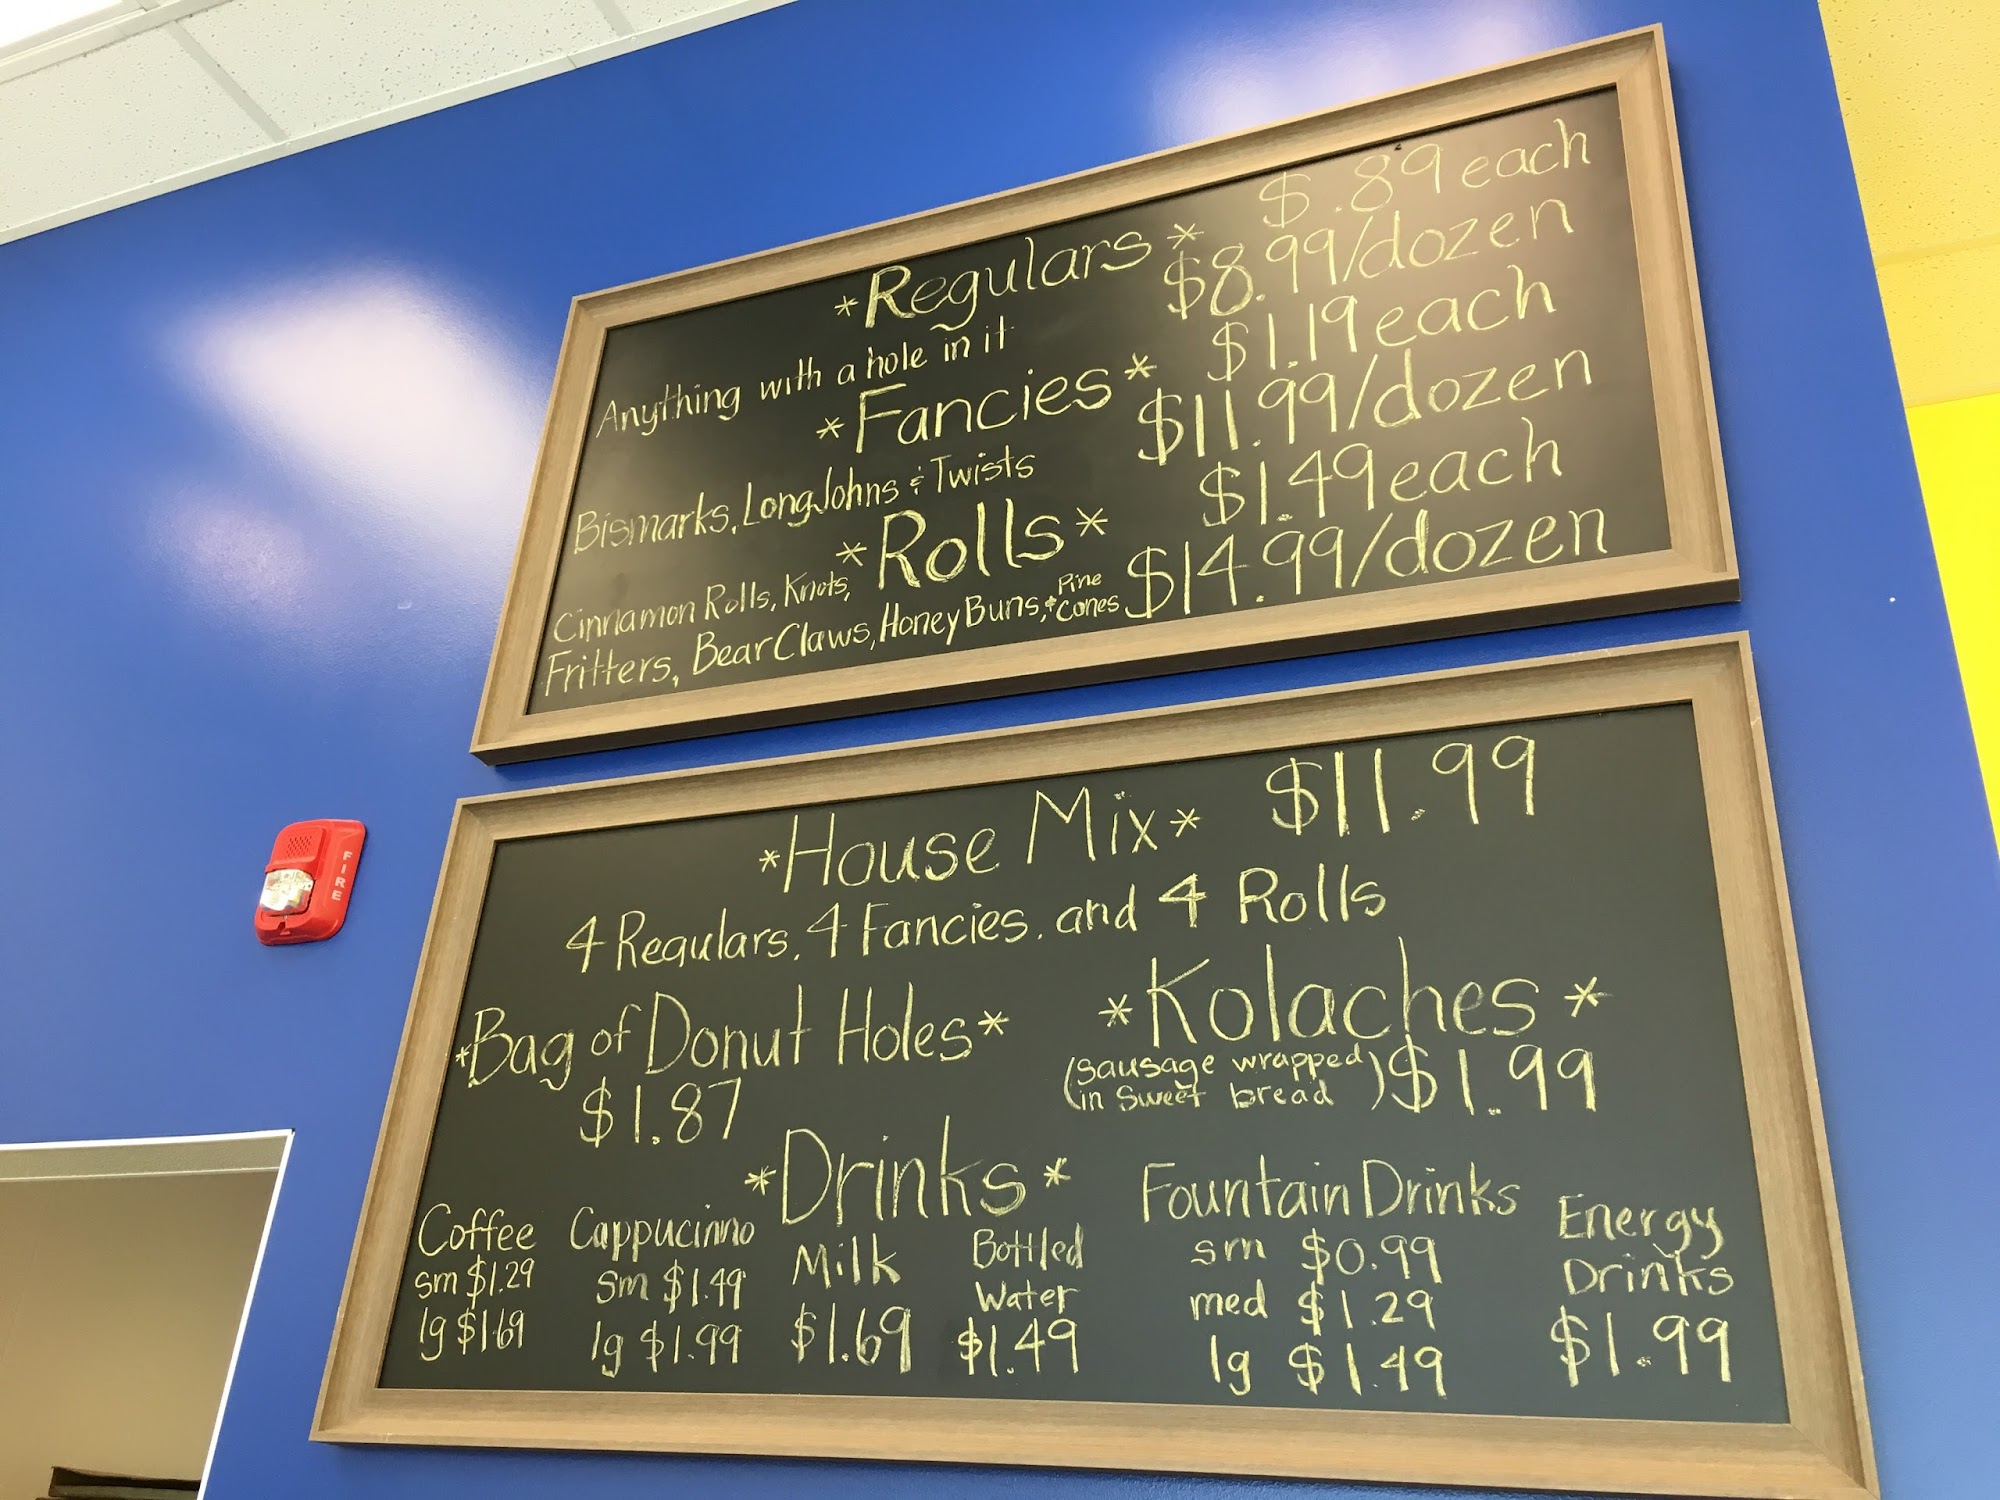 *Regulars* $.89 each
$8.99/dozen
Anything with a hole in it
*Fancies* $1.19 each
$11.99/dozen
Bismarks, Long Johns & Twists
*Rolls* $1.49 each
$14.99/dozen
Cinnamon Rolls, Knots,
Fritters, Bear Claws, Honey Buns, & Pine Cones
*House Mix* $11.99
4 Regulars, 4 Fancies, and 4 Rolls
*Bag of Donut Holes*
$1.87
*Kolaches*
(sausage wrapped in sweet bread) $1.99
*Drinks*
Coffee
sm $1.29
lg $1.69
Cappucinno
sm $1.49
lg $1.99
Milk
$1.69
Bottled
Water
$1.49
Fountain Drinks
sm $0.99
med $1.29
lg $1.49
Energy
Drinks
$1.99
FIRE